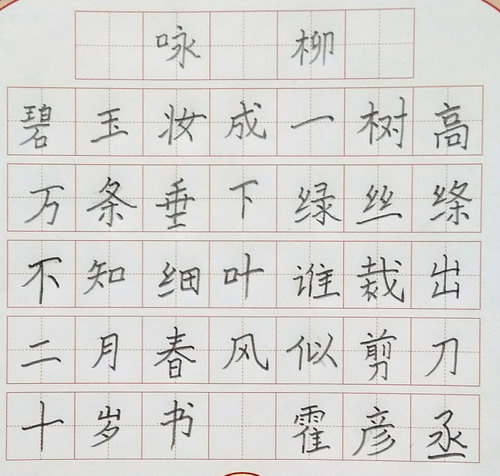 咏 柳
碧玉妆成一树高
万条垂下绿丝绦
不知细叶谁裁出
二月春风似剪刀
十岁书 霍彦丞